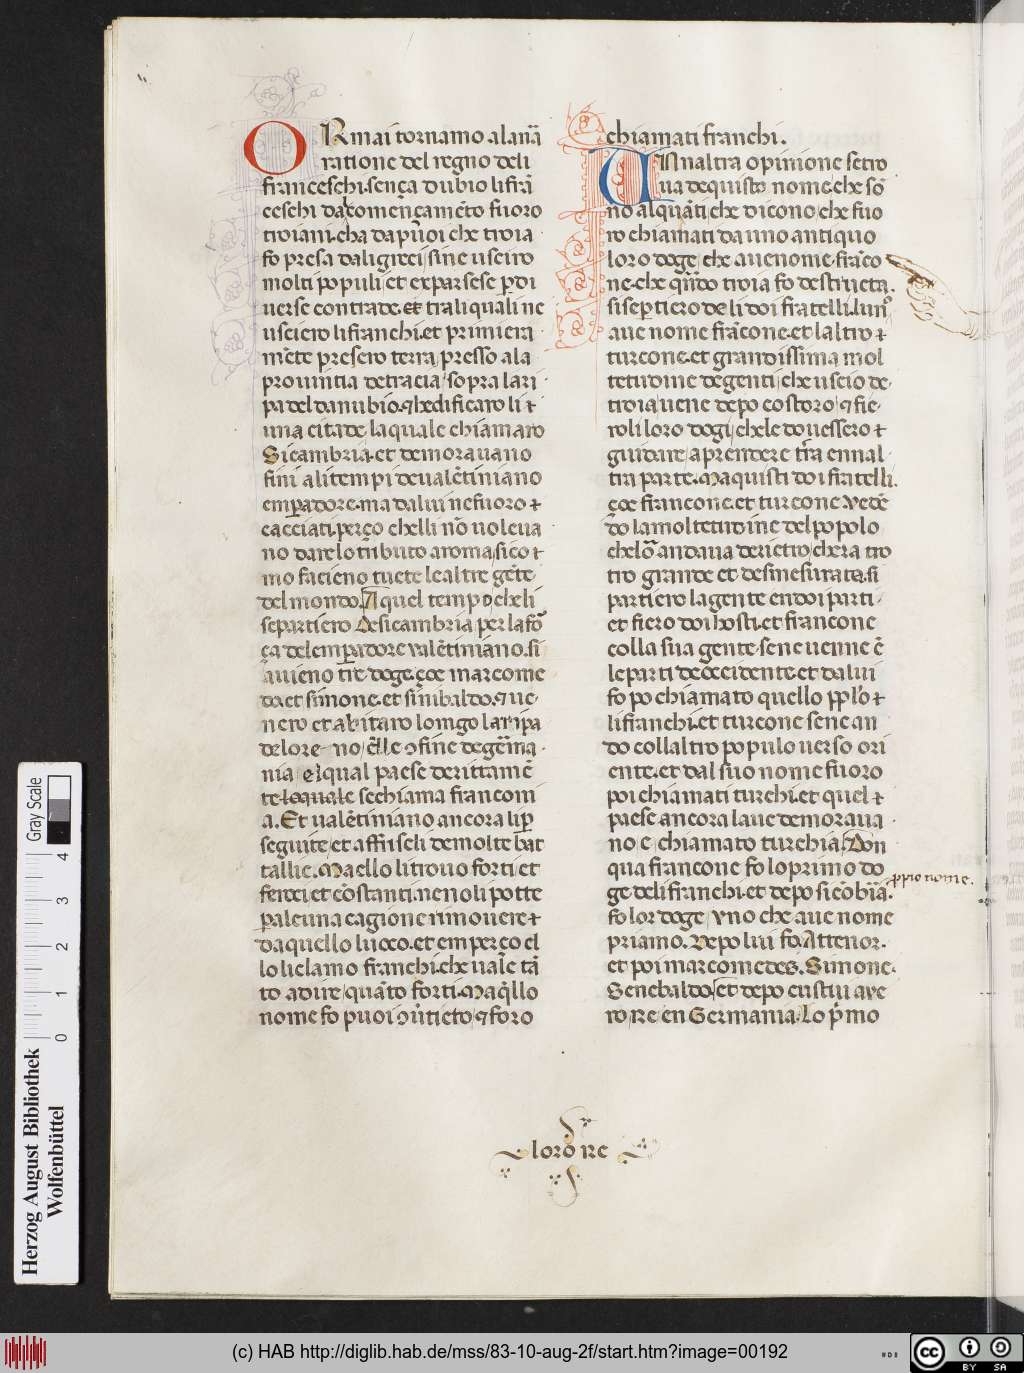 ORmai tornamo alanã
ratione del regno deli
franceschi.sença dubio li frã
ceschi dacomençamẽto fuoro
troiani.cha da pũoi che troia
fo presa dali greci/sine usciro
molti populi/et exparsese ꝑ di
uerse contrade.et tra li quali ne
usciero li franchi.et primiera
mẽte presero terra presso ala
prouintia de tracia/sopra la ri
pa del danubio.⁊ hedificaro li
una citade laquale chiamaro
Sicambria.et demorauano
fini ali tempi de ualẽtiniano
emꝑadore.ma da lui ne fuoro
cacciati.perço chelli nõ uoleua
no dare lo tributo a roma/sico
mo facieno tuete le altre gẽte
del mondo. A quel tempo cheli
se partiero de sicambria per la fõ
ça del emꝑadore valẽtiniano.si
auieno tre doge.çoe marcome
da.et simone.et simbaldo.⁊ ue
nero et abitaro longo la ripa
de lo re no/elle ɔfine de germa
nia el qual paese derittamẽ
te loquale se chiama franconi
a. Et ualẽtiniano ancora li ꝑ
seguite/et affriseli de molte bat
tallie. Ma ello li trouo forti et
feroci et cõstanti.ne no li potte
ꝑ alcuna cagione rimouere
da quello luoco.et emperço el
lo li clamo franchi.che uale tã
to a dire/quãto forti. Ma q̃llo
nome fo puoi ɔũtieto.⁊ foro
chiamati franchi.
UNaltra opinione se tro
ua de quisto nome.che sõ
no alquãti che dicono/che fuo
ro chiamati da uno antiquo
loro doge/che aue nome frãco
ne.che qñdo troia fo destructa.
si se ꝑtiero de li doi fratelli.lunº
aue nome frãcone.et laltro
turcone.et grandissima mol
tetudine de genti/che uscio de
troia uene depo costoro.⁊ fie
roli loro dogi/chele douessero
guidare/a prendere tr̃a en nal
tra parte. Ma quisti doi fratelli.
çoe francone.et turcone.vedẽ
do la moltetudine del popolo
che lõ andaua derietro/chera tro
tro grande et desmesurata.si
partiero la gente en doi parti
et fiero doi hosti.et francone
colla sua gente.sene uenne ẽ
le parti de occidente.et da lui
fo po chiamato quello ppl̃o
li franchi.et turcone sene an
do coll altro populo uerso ori
ente.et dal suo nome fuoro
poi chiamati turchi.et quel
paese ancora laue demoraua
no e chiamato turchia. Don
qua francone fo lo primo do
ge deli franchi.et depo sicõbia.
fo lor doge/vno che aue nome
priamo. Depo lui fo Attenor.
et poi marcomedes. Simone.
Senebaldo/et depo custui aue
ro rre en Germania. Lo p̃mo
ꝓpio nome.
loro re
Herzog August Bibliothek
Wolfenbüttel
0 1 2 3 4
Gray Scale
(c) HAB http://diglib.hab.de/mss/83-10-aug-2f/start.htm?image=00192
cc BY SA